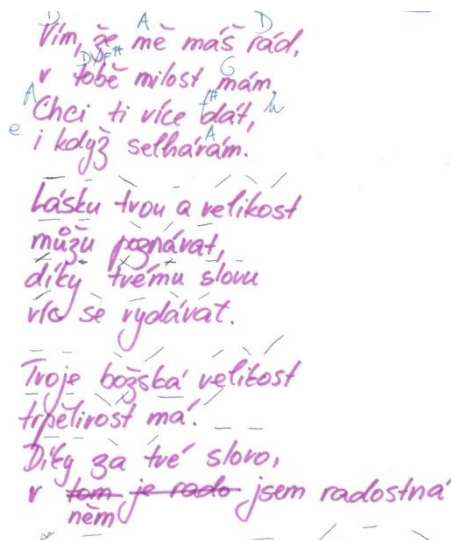 D A D
Vím, že mě máš rád,
D/F# G
v tobě milost mám,
A f# h
Chci ti více dát,
e A
i když selhávám.
Lásku tvou a velikost
můžu poznávat,
díky tvému slovu
víc se vydávat.
Tvoje božská velikost
trpělivost má.
Díky za tvé slovo,
v tom je rado jsem radostná
něm